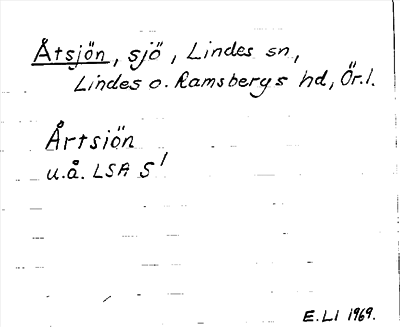 Åtsjön, sjö, Lindes sn,
Lindes o. Ramsbergs hd, Ör.l.
Årtsiön
u.å. LSA S1
E.LI 1969.